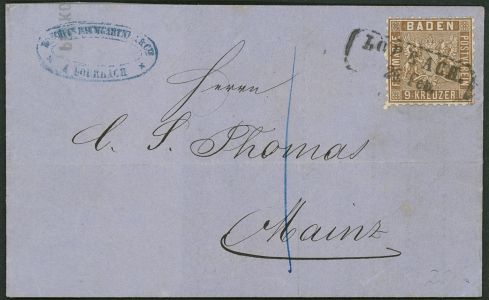 BAUMGARTNER & Cie
A LOERRACH
LÖRRACH
BADEN
FREIMARKE
POSTVEREIN
9 KREUZER
Herrn
C. S. Thomas
Mainz